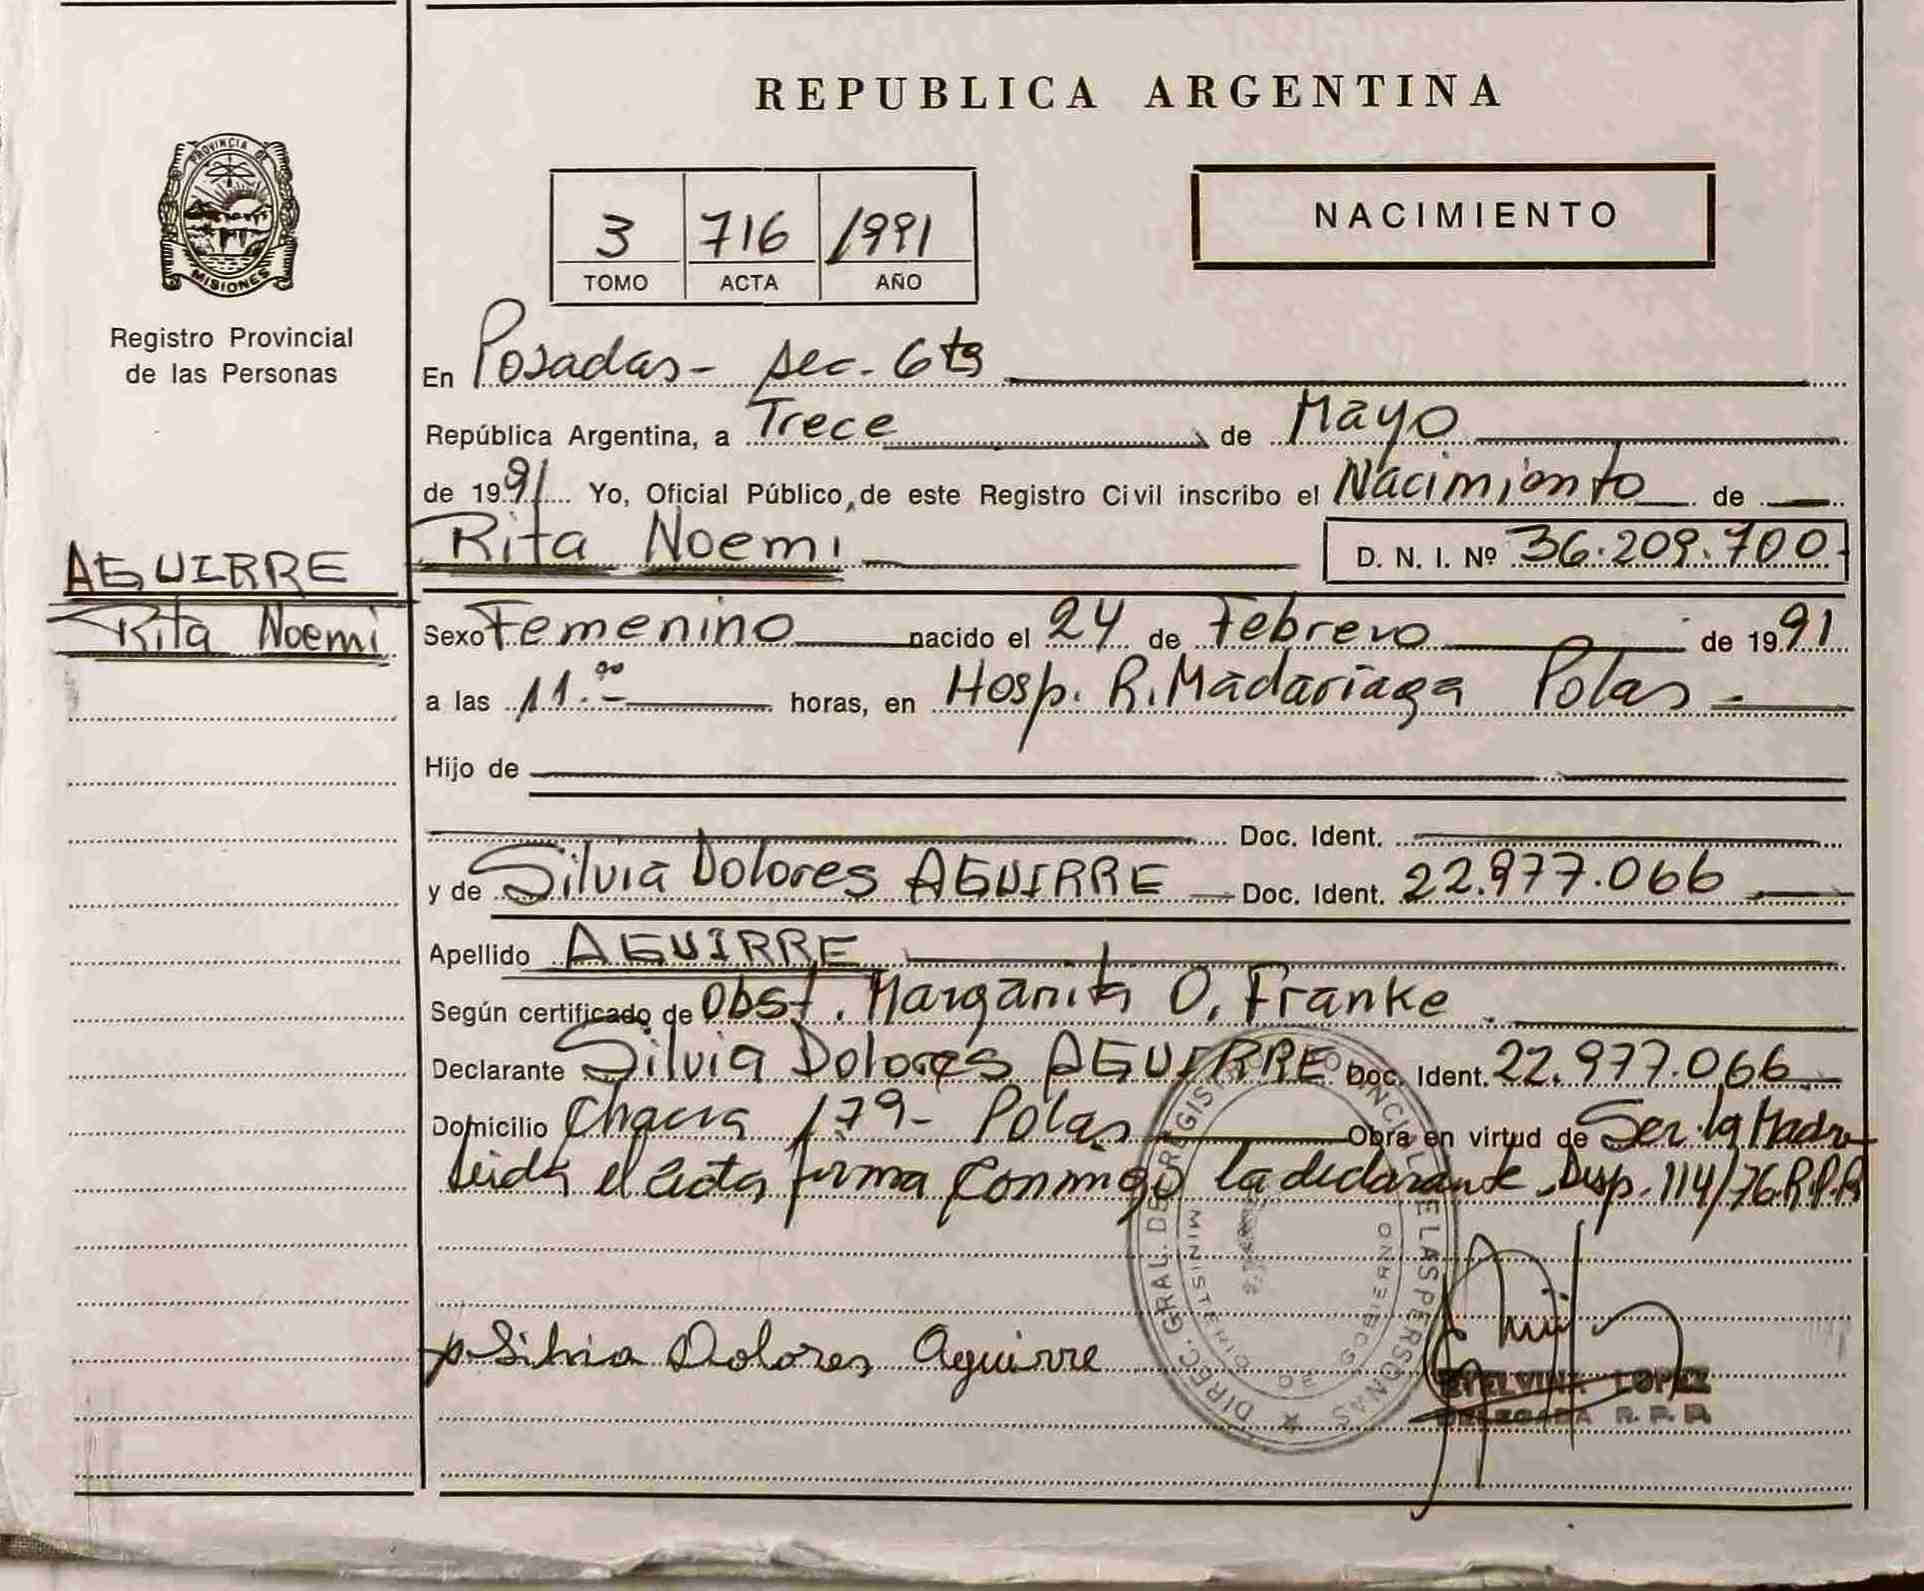 REPUBLICA ARGENTINA
PROVINCIA DE
MISIONES
Registro Provincial
de las Personas
3 716 1991
TOMO ACTA AÑO
NACIMIENTO
En Posadas - sec. 6ta
República Argentina, a Trece de Mayo
de 1991 Yo, Oficial Público, de este Registro Civil inscribo el Nacimiento de
Rita Noemi D. N. I. Nº 36.209.700
AGUIRRE
Rita Noemi
Sexo Femenino nacido el 24 de Febrero de 1991
a las 11.00 horas, en Hosp. R. Madariaga Pdas
Hijo de
Doc. Ident.
y de Silvia Dolores AGUIRRE Doc. Ident. 22.977.066
Apellido AGUIRRE
Según certificado de Obst. Margarita O. Franke
Declarante Silvia Dolores AGUIRRE Doc. Ident. 22.977.066
Domicilio Chacra 179 - Pdas Obra en virtud de Ser la Madre
Leida el Acta firma conmigo la declarante. Disp. 114/76.R.P.P.
DIREC. GRAL. DE REGIS PROVINCIAL DE LAS PERSONAS
MINISTERIO DE GOBIERNO
p. Silvia Dolores Aguirre
ETELVINA LOPEZ
DELEGADA R. P. P.